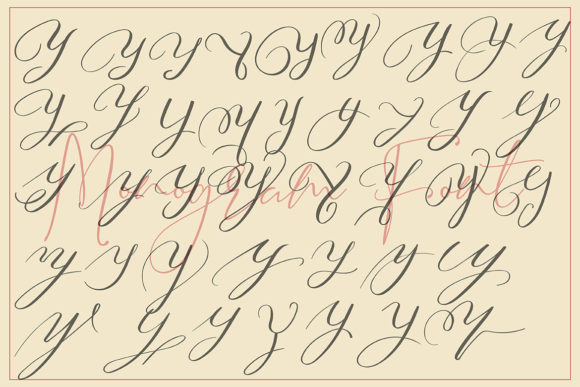 Y Y Y Y Y Y Y Y Y
Y Y Y Y Y Y Y Y Y
Monogram Font
Y Y Y Y Y Y Y Y
Y Y Y Y Y Y Y
Y Y Y Y Y Y Y